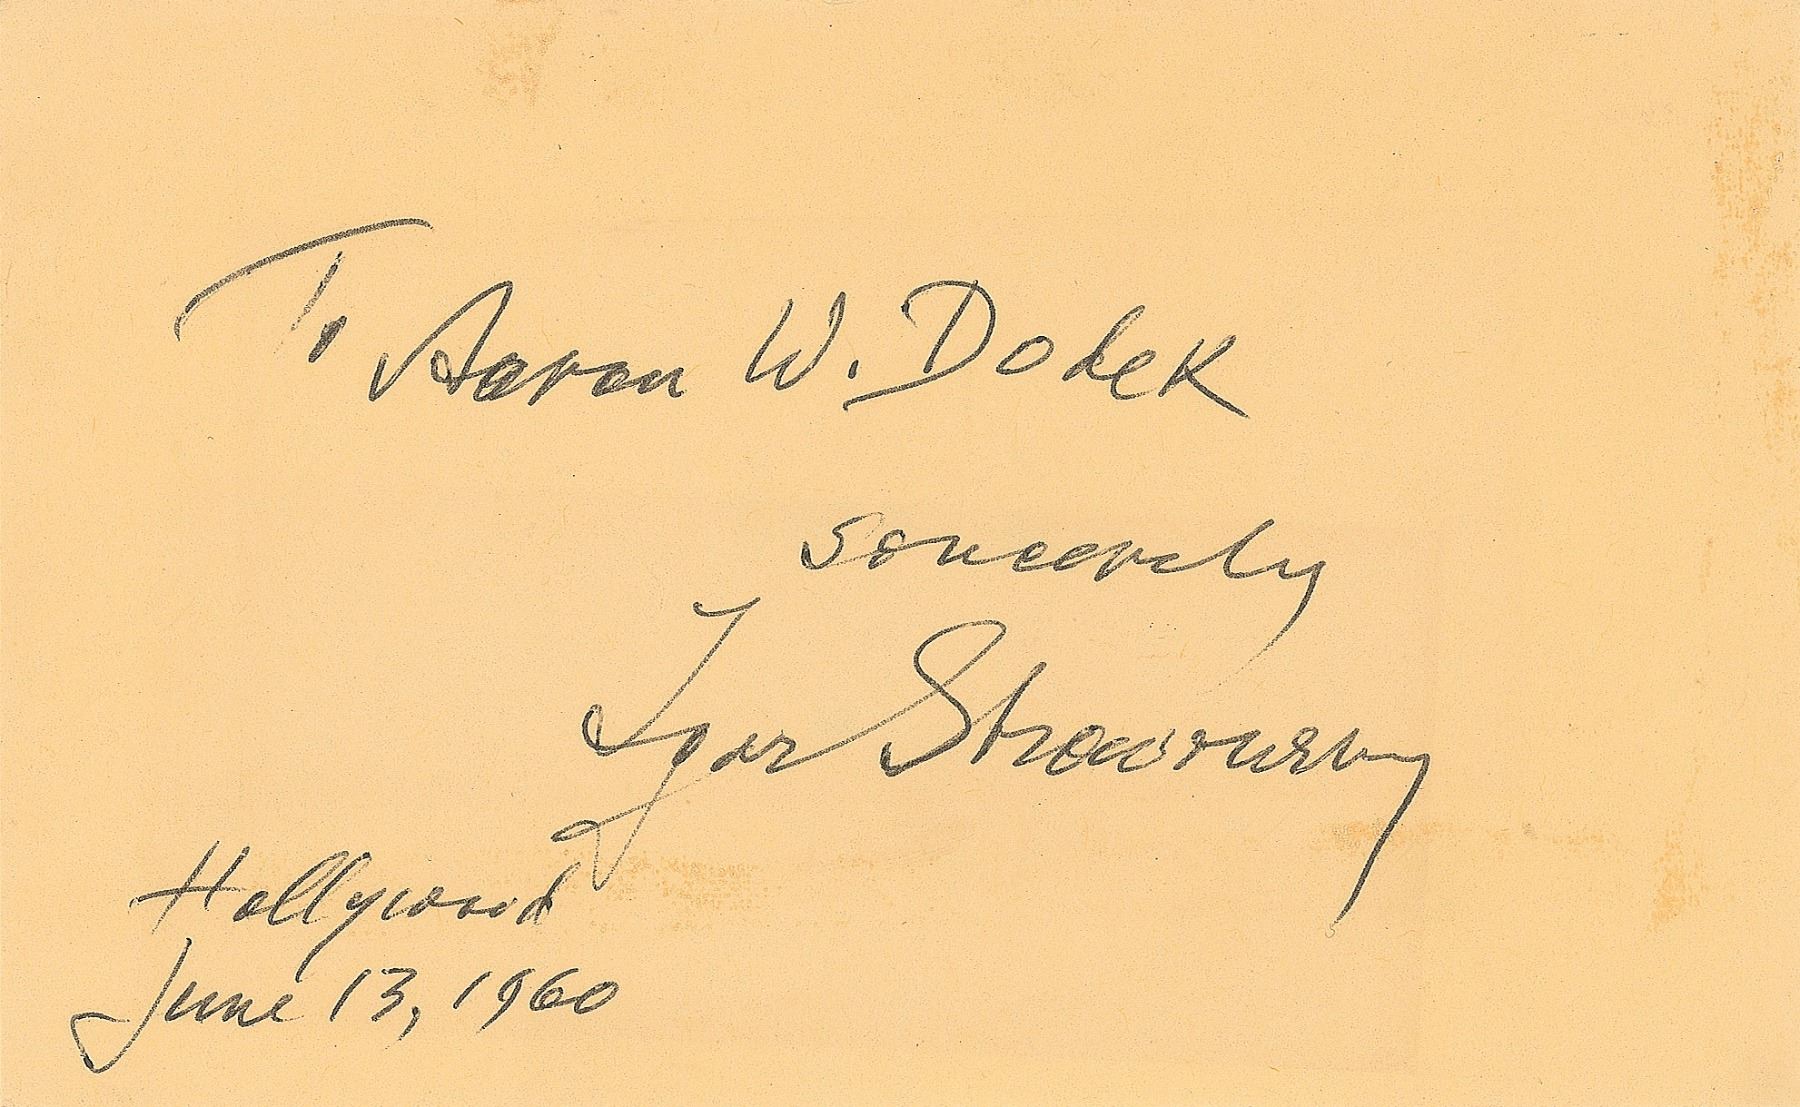 To Aaron W. Dodek
sincerely
Igor Strawinsky
Hollywood
June 13, 1960